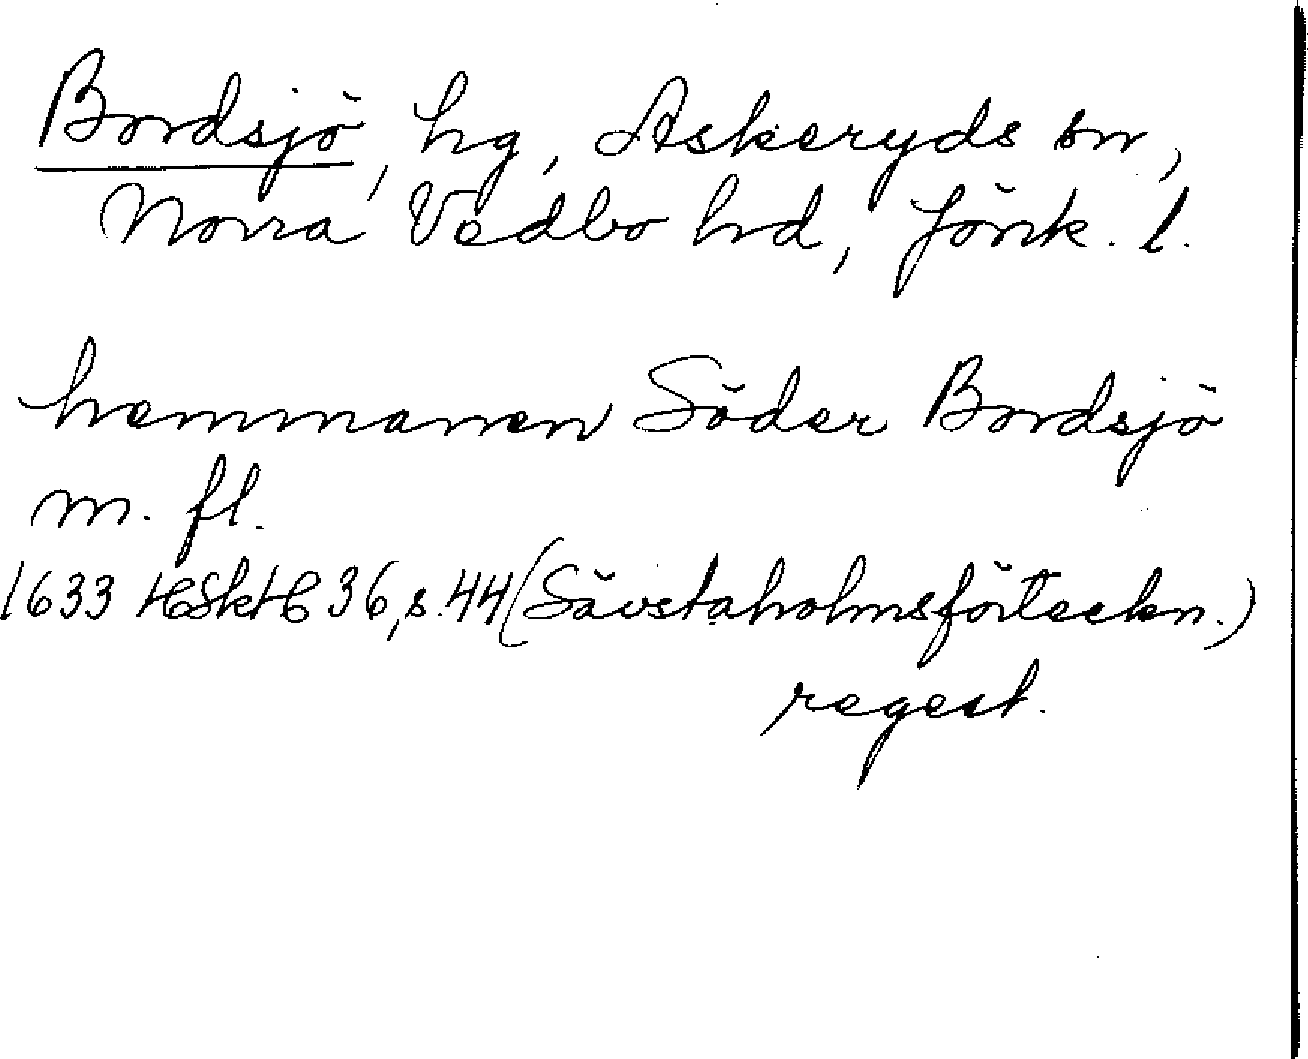 Bordsjö, hg, Askeryds sn,
Norra Vedbo hd, Jönk. l.
hemmanen Söder Bordsjö
m. fl.
1633 HSkH 36, s. 44 (Sävstaholmsförteckn.)
regest.